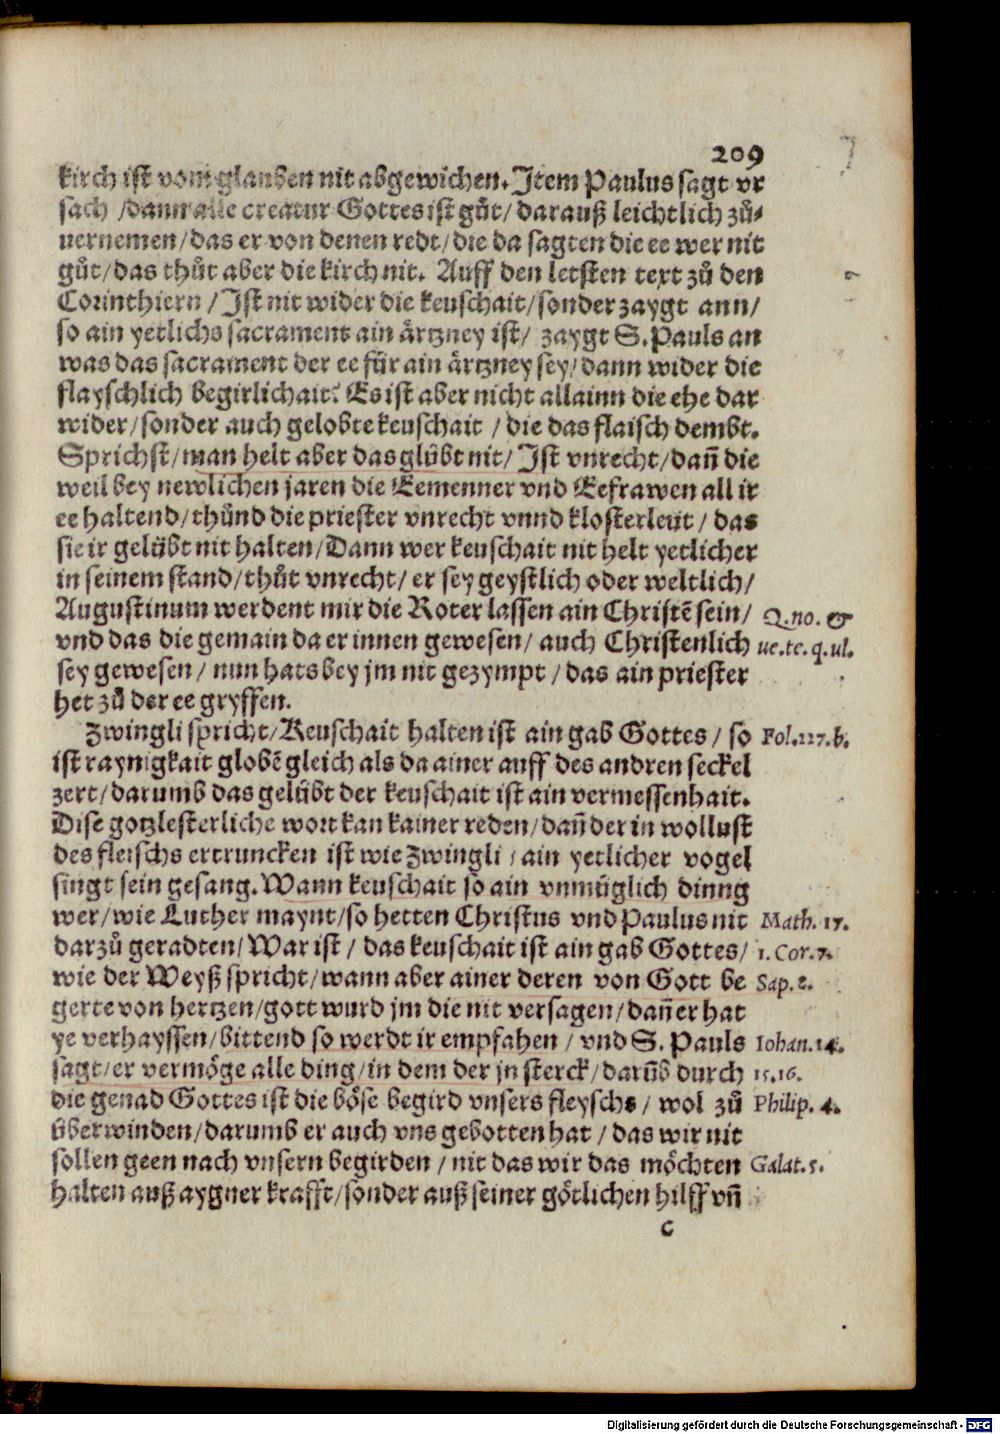 209
kirch ist vom glauben nit abgewichen. Item Paulus sagt vr
sach / dann alle creatur Gottes ist gůt / darauß leichtlich zů⸗
uernemen / das er von denen redt / die da sagten die ee wer nit
gůt / das thůt aber die kirch nit. Auff den letsten text zů den
Corinthiern / Ist nit wider die keuschait / sonder zaygt ann /
so ain yetlichs sacrament ain ärtzney ist / zaygt S. Pauls an
was das sacrament der ee für ain ärtzney sey / dann wider die
flayschlich begirlichait. Es ist aber nicht allainn die ehe dar
wider / sonder auch gelobte keuschait / die das flaisch dembt.
Sprichst / man helt aber das glübt nit / Ist vnrecht / dañ die
weil bey newlichen jaren die Eemenner vnd Eefrawen all ir
ee haltend / thůnd die priester vnrecht vnnd klosterleut / das
sie ir gelübt nit halten / Dann wer keuschait nit helt yetlicher
in seinem stand / thůt vnrecht / er sey geystlich oder weltlich /
Augustinum werdent mir die Roter lassen ain Christē sein / Q. no. &
vnd das die gemain da er innen gewesen / auch Christenlich ue. te. q. ul.
sey gewesen / nun hats bey jm nit gezympt / das ain priester
het zů der ee gryffen.
Zwingli spricht / Keuschait halten ist ain gab Gottes / so Fol. 127. b.
ist raynigkait globē gleich als da ainer auff des andren seckel
zert / darumb das gelübt der keuschait ist ain vermessenhait.
Dise gotzlesterliche wort kan kainer reden / dañ der in wollust
des fleischs ertruncken ist wie Zwingli / ain yetlicher vogel
singt sein gesang. Wann keuschait so ain vnmüglich dinng
wer / wie Luther maynt / so hetten Christus vnd Paulus nit Math. 17.
darzů geradten / War ist / das keuschait ist ain gab Gottes / 1. Cor. 7.
wie der Weyß spricht / wann aber ainer deren von Gott be Sap. 8.
gerte von hertzen / gott wurd jm die nit versagen / dañ er hat
ye verhayssen / bittend so werdt ir empfahen / vnd S. Pauls Iohan. 14.
sagt / er vermöge alle ding / in dem der jn sterck / darūb durch 15. 16.
die genad Gottes ist die böse begird vnsers fleyschs / wol zů Philip. 4.
überwinden / darumb er auch vns gebotten hat / das wir nit
sollen geen nach vnsern begirden / nit das wir das möchten Galat. 5.
halten auß aygner krafft / sonder auß seiner götlichen hilff vñ
c
Digitalisierung gefördert durch die Deutsche Forschungsgemeinschaft - DFG